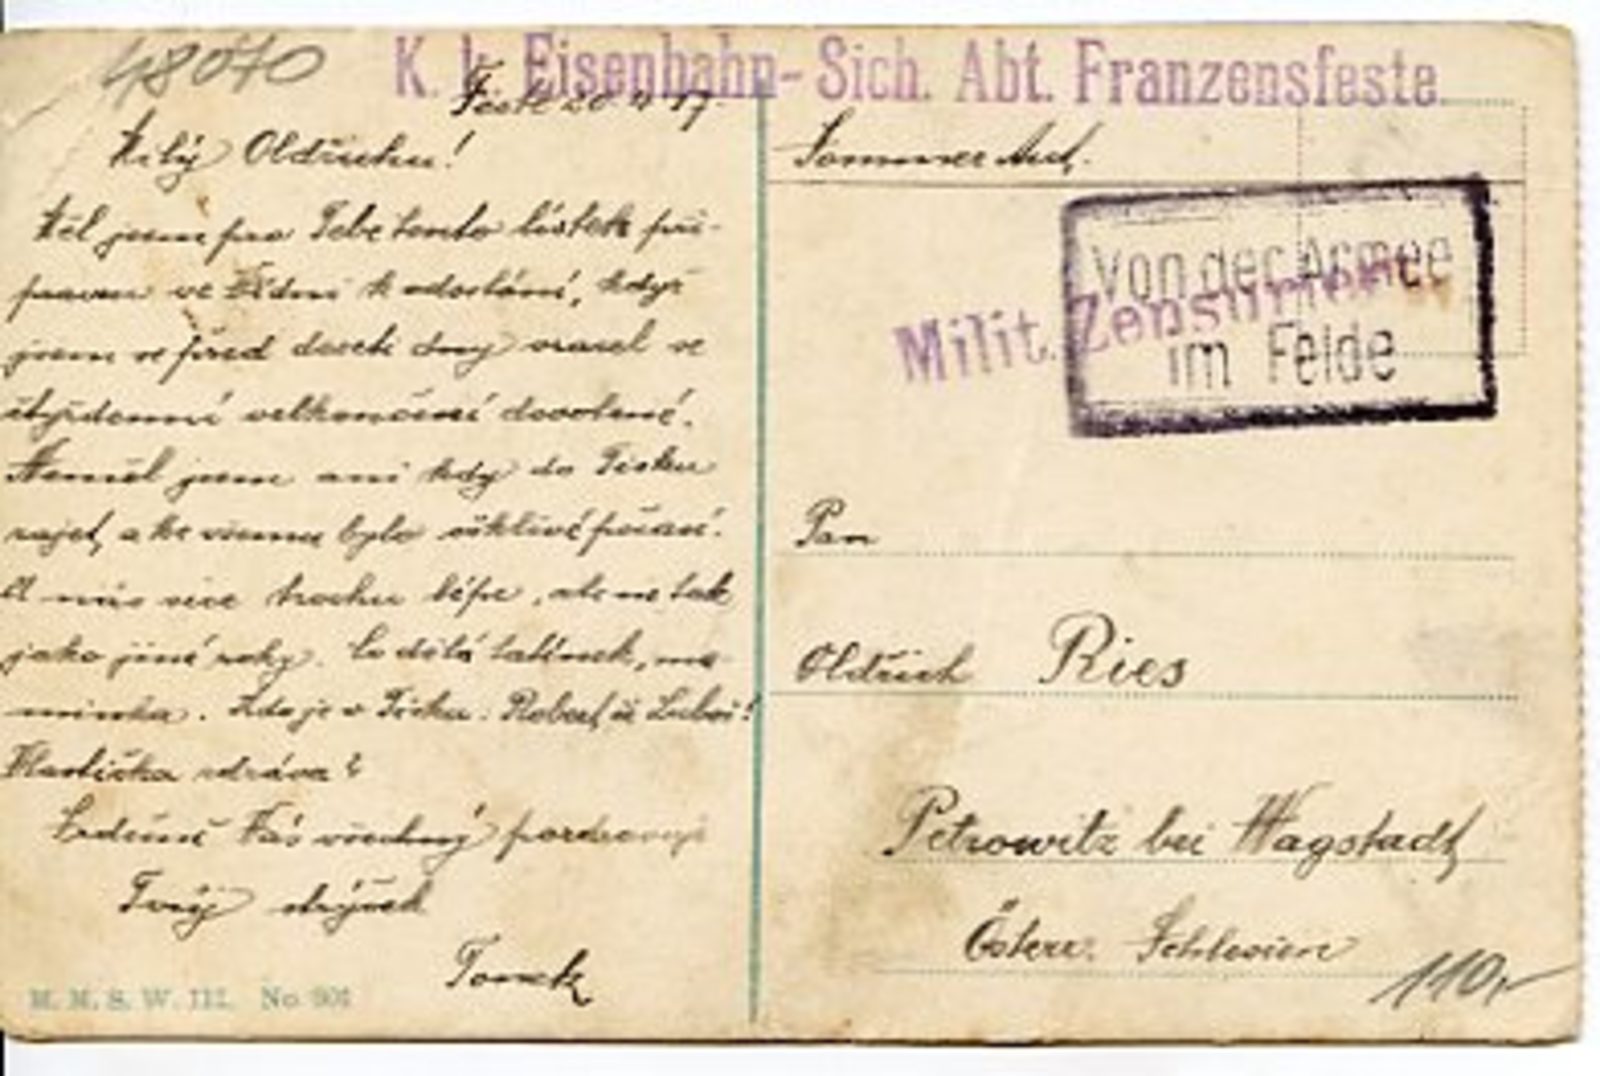 48070
K. k. Eisenbahn-Sich. Abt. Franzensfeste.
Feste 20 4 17.
Milý Oldřichu!
Měl jsem pro Tebe tento lístek při-
praven ve Vídni k odeslání, když
jsem se před dny vracel ze
velikonoční dovolené.
Neměl jsem ani kdy do Tísku
zajet, a ke všemu bylo ošklivé počasí.
U nás sice trochu lépe, ale ne tak
jako jiné roky. Co dělá tatínek, ma-
minka. Kdo je v Tísku: Robert, či Luboš?
Vlastička zdráva?
Srdečně Vás všechny pozdravuje
Tvůj strýček
Tonek
M. M. S. W. III. No 801
Sommer Ant.
Von der Armee
im Felde
Milit. Zensuriert
Pan
Oldřich Ries
Petrowitz bei Wagstadt
Österr. Schlesien
110,-